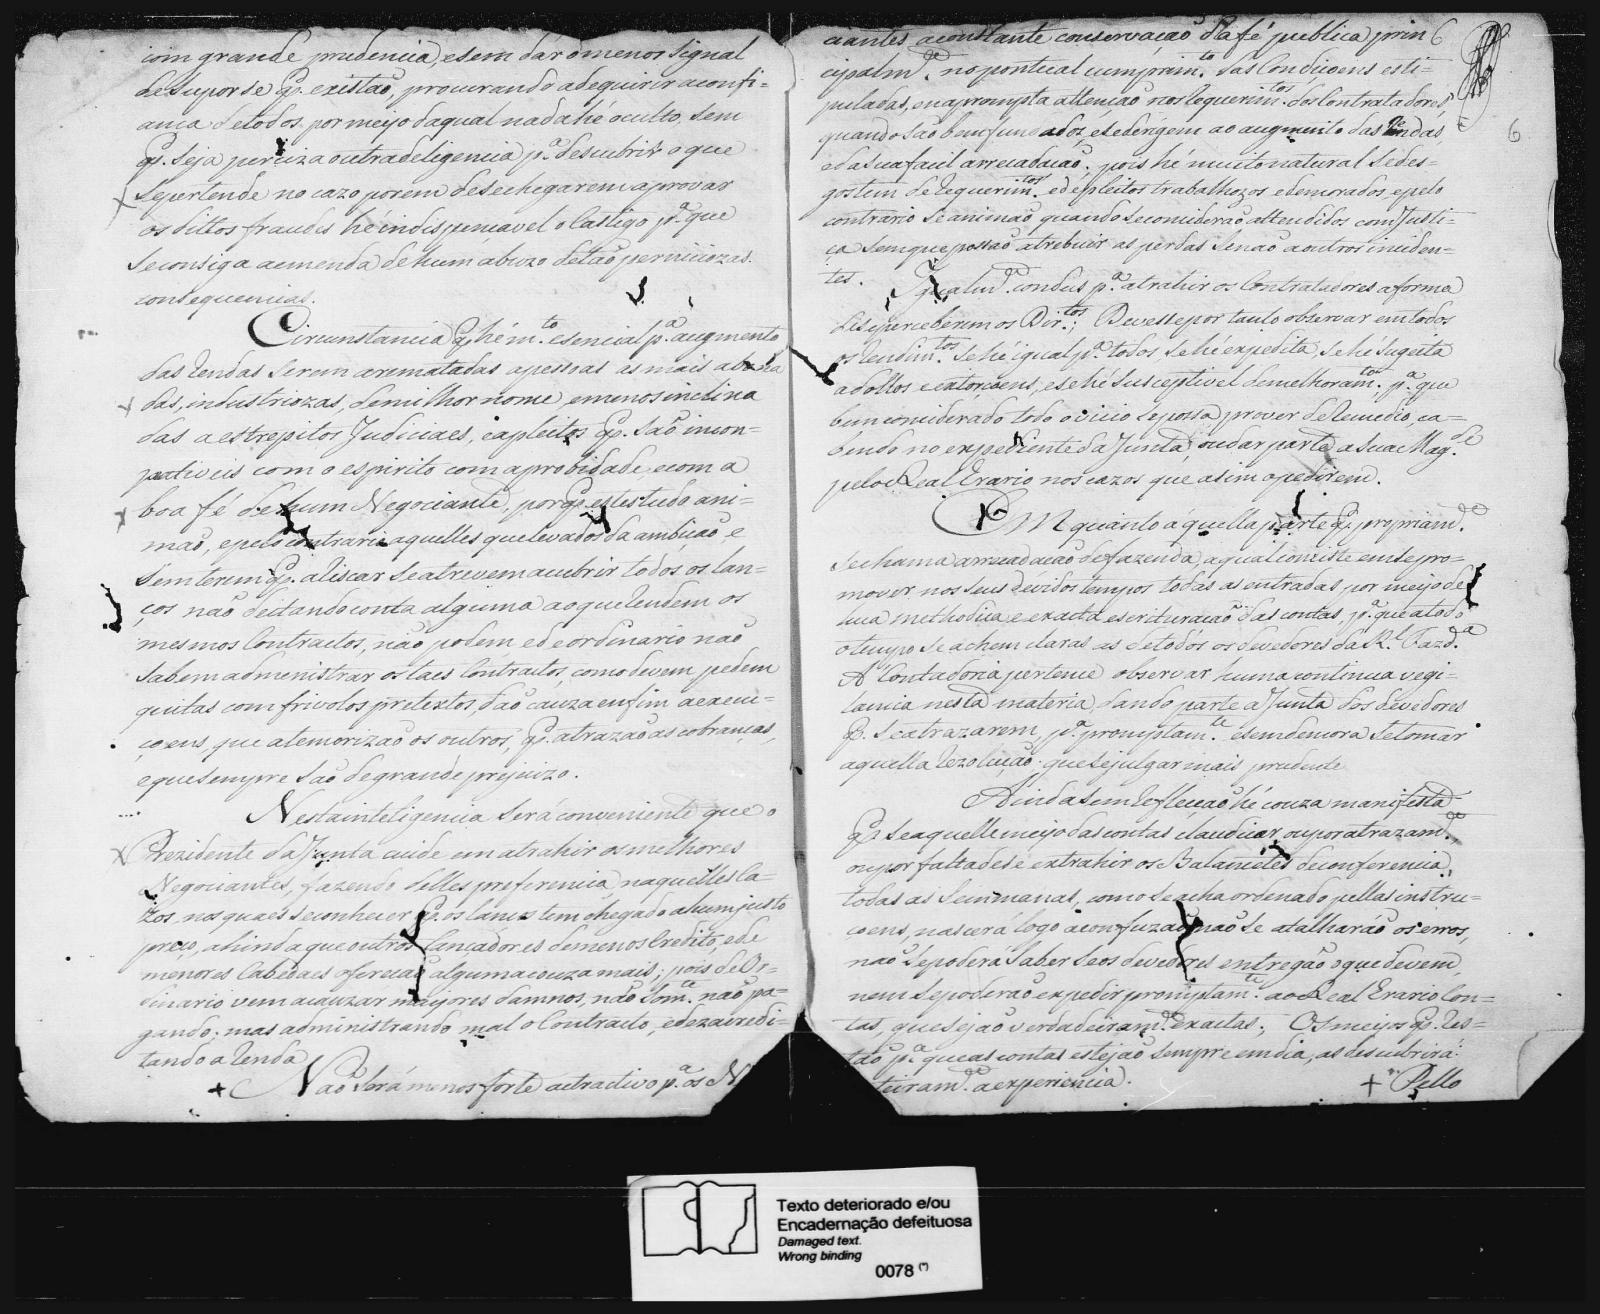 com grande prudencia, e sem dar o menor signal
de supor se q̃. existaõ, procurando adequirir a confi-
ança de todos por meyo da qual nada hé oculto, sem
q̃. seja perciza outra deligencia p.ª descubrir o que
se pertende no cazo porem de se chegarem a provar
os dittos fraudes hé indispençavel o Castigo p.ª que
se consiga a emenda de hum abuzo de taõ perniciozas
consequencias.
Circunstancia q̃. hé m.to esencial p.ª augmento
das Rendas serem arematadas a pessoas as mais abona
das, industriozas, de milhor nome, e menos inclina
das a estrepitos Judiciaes, e apleitos q̃. saõ incom-
pativeis com o espirito com a probidade, e com a
boa fé de hum Negociante, por q̃. estes tudo ani-
maõ, e pelo contrario aquelles que levados da ambiçaõ, e
sem terem q̃. ariscar se atrevem a cubrir todos os lan-
ços naõ deitando conta alguma ao que Rendem os
mesmos Contractos, naõ podem e de ordinario naõ
sabem administrar os taes Contractos, como devem, pedem
quitas com frivolos pretextos, daõ cauza enfim a execu-
çoens, que atemorizaõ os outros, q̃. atrazaõ as cobranças,
e que sempre saõ de grande prejuizo.
Nesta inteligencia será conveniente que o
Prezidente da Junta cuide em atrahir os melhores
Negociantes, fazendo delles preferencia naquelles la-
zos, nos quaes se conhecer q̃. os lanços tem chegado a hum justo
preço, ahinda que outros Lançadores de menos Credito, e de
menores Cabedaes ofereçaõ alguma couza mais; pois de Or-
dinario vem a cauzar mayores damnos, naõ som.te naõ pa-
gando; mas administrando mal o Contracto, e dezacredi-
tando a Renda
Naõ será menos forte actractivo p.ª os N
ciantes a constante conservaçaõ da fé publica prin 6
cipalm.e no pontual cumprim.to das Condiçoens esti-
puladas, e na prompta attençaõ nos Requerim.tos dos Contratadores,
6
quando saõ bem fundados, e se derigem ao augmento das Rendas,
e da sua facil arrecadaçaõ, pois hé muito natural se des-
gostem de Requerim.tos e de pleitos trabalhozos e demorados, e pelo
contrario se animaõ quando se consideraõ attendidos com Justi-
ça sem que possaõ atrebuir as perdas senaõ a outros inciden-
tes. Igualm.e condus p.ª atrahir os Contratadores a forma
de se perceberem os Dir.tos; Devesse por tanto observar em todos
os Rendim.tos se hé igual p.ª todos, se hé expedita, se hé sugeita
a dollos e extorçoens, e se hé susceptivel de melhoram.tos, p.ª que
bem considerado todo o vicio se possa prover de Remedio, ca-
bendo no expediente da Junta, ou dar parte a Sua Mag.de
pelo Real Erario nos cazos que asim o pedirem.
Em quanto áquella parte q̃. propriam.e
se chama arrecadaçaõ de fazenda, a qual consiste em se pro-
mover nos seus devidos tempos todas as entradas, por meyo de
hua methodica, e exacta escrituraçaõ das contas, p.ª que a todo
o tempo se achem claras as de todos os devedores da R.l Fazd.ª
A Contadoria pertence observar huma continua vigi-
lancia nesta materia, dando parte a Junta dos devedores
q̃. se atrazarem, p.ª promptam.te e sem demora se tomar
aquella Rezoluçaõ que se julgar mais prudente
Ainda sem Reflecçaõ hé couza manifesta
q̃. se aquelle meyo das contas claudicar, ou por atrazam.to
ou por falta de se extrahir os Balancetes de conferencia,
todas as Semmanas, como se acha ordenado pellas instru-
coens, nascerá logo a confuzaõ, naõ se atalharáõ os erros,
naõ se poderá saber se os devedores entregaõ o que devem,
nem se poderaõ expedir promptam.te ao Real Erario Con-
tas, que sejaõ verdadeiram.e exactas; Os meyos q̃. Res-
taõ p.ª que as contas estejaõ sempre em dia, as descubrirá
teiram.e a experiencia.
Pello
Texto deteriorado e/ou
Encadernação defeituosa
Damaged text.
Wrong binding
0078 (*)